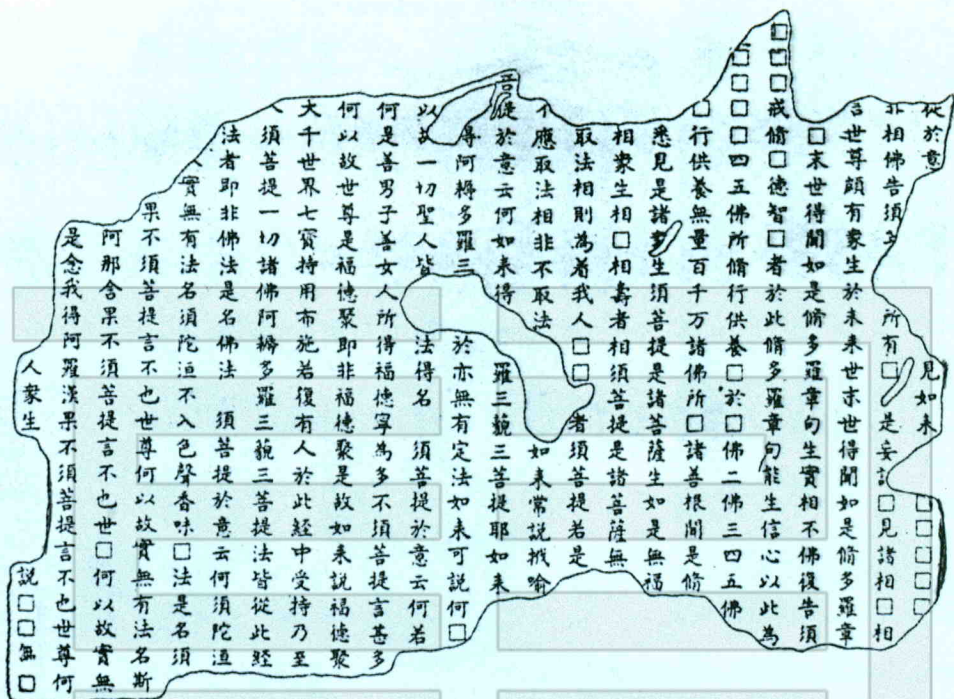 從於意 見如来 □□□□
非相佛告須 所有□ 是妄語□見諸相□相
言世尊頗有衆生於未来世末世得聞如是脩多羅章
□末世得聞如是脩多羅章句生實相不佛復告須
□□□戒脩□德智□者於此脩多羅章句能生信心以此為
□□□□四五佛所脩行供養□於□佛二佛三四五佛
□行供養無量百千万諸佛所□諸善根聞是脩
悉見是諸多生須菩提是諸菩薩生如是無福
相衆生相□相壽者相須菩提是諸菩薩無
取法相則為着我人□□ 者須菩提若是
不應取法相非不取法 如来常説栰喻
菩提於意云何如来得 羅三藐三菩提耶如来
得阿耨多羅三 於亦無有定法如来可説何□
以故一切聖人皆 法得名 須菩提於意云何若
何是善男子善女人所得福德寧為多不須菩提言甚多
何以故世尊是福德聚即非福德聚是故如来説福德聚
大千世界七寶持用布施若復有人於此経中受持乃至
須菩提一切諸佛阿耨多羅三藐三菩提法皆從此経
法者即非佛法是名佛法 須菩提於意云何須陀洹
人實無有法名須陀洹不入色聲香味□法是名須
果不須菩提言不也世尊何以故實無有法名斯
阿那含果不須菩提言不也世□何以故實無
是念我得阿羅漢果不須菩提言不也世尊何
人衆生 説□□□無□